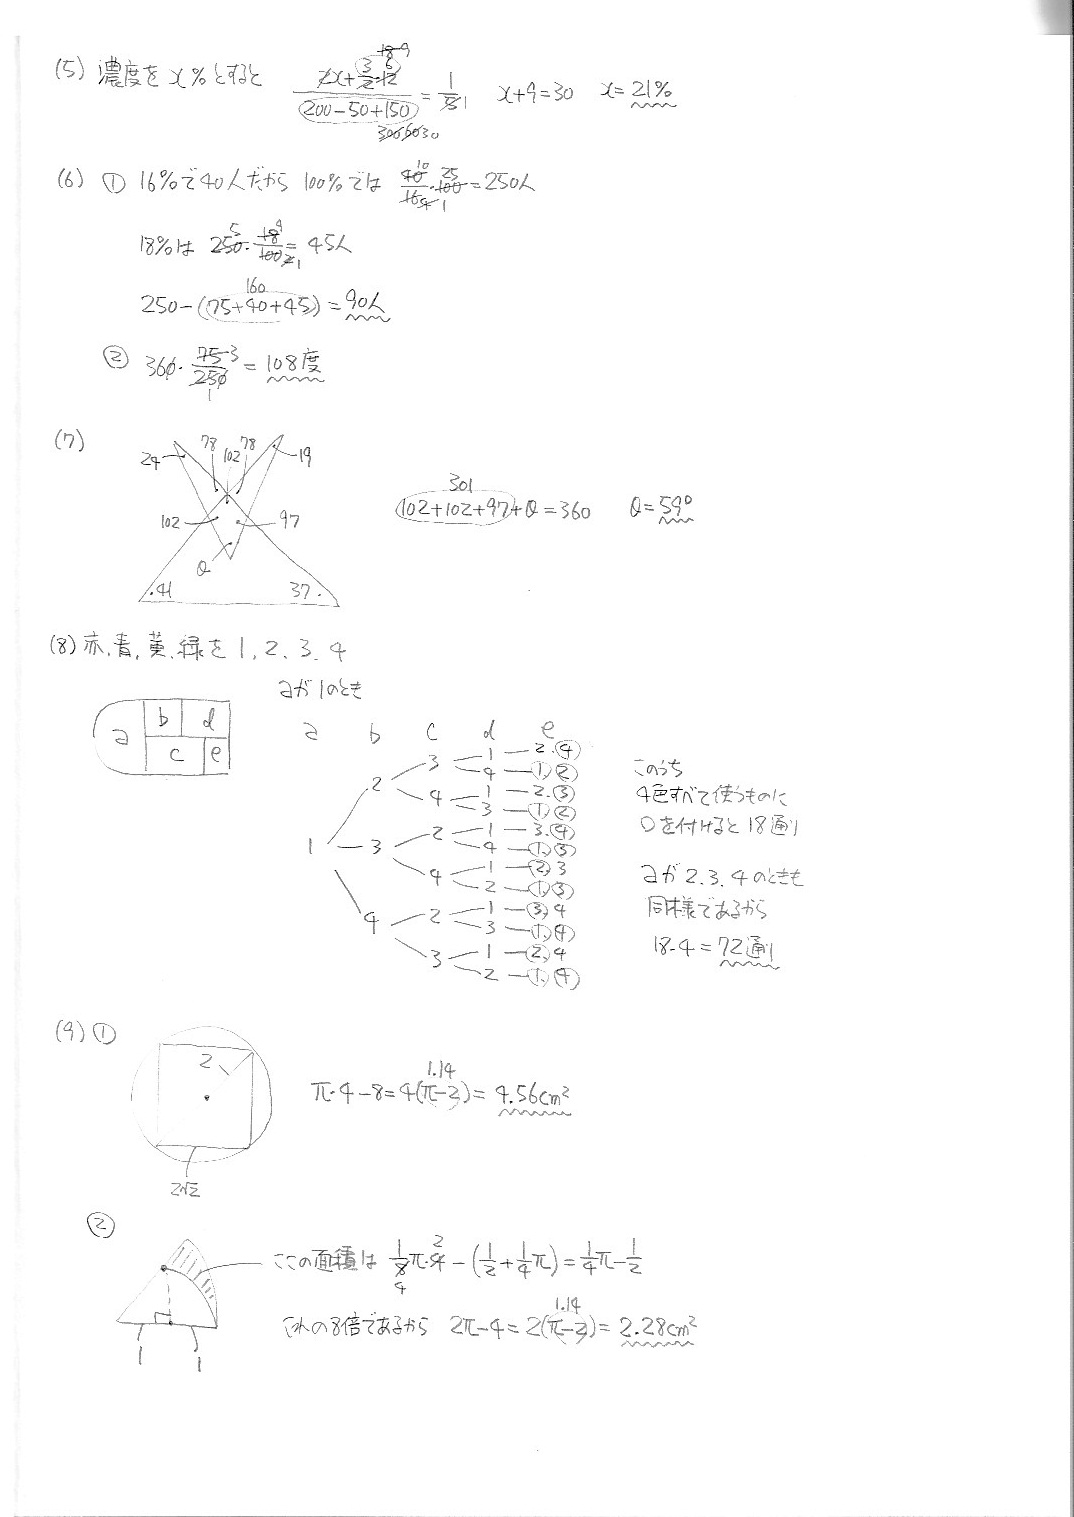 (5) 濃度をx%とすると (2x+3/2・12)/(200-50+150)=1/5 x+9=30 x=21%
18 9
3 6
300 60 30
(6) ① 16%で40人だから 100%では 40/16・100=250人
10 25
4 1
18%は 250・18/100=45人
5 9
2 1
160
250-(75+40+45)=90人
② 360・75/250=108度
3
1
(7)
24 78 102 78 19
102 97
θ
41 37
301
102+102+97+θ=360 θ=59°
(8) 赤,青,黄,緑を 1,2,3,4
aが1のとき
a b c d e
a b d c e
3 1 2.④
2 4 ①,②
4 1 2.③
3 ①,②
2 1 3.④
1 3 4 ①,③
4 1 ②,3
2 ①,③
2 1 ③,4
4 3 ①,④
3 1 ②,4
2 ①,④
このうち
4色すべて使うものに
○を付けると18通り
aが2.3.4のときも
同様であるから
18・4=72通り
(9) ①
2
2√2
1.14
π・4-8=4(π-2)=4.56cm²
②
ここの面積は 1/8π・4-(1/2+1/4π)=1/4π-1/2
2
4
1 1
これの8倍であるから 2π-4=2(π-2)=2.28cm²
1.14